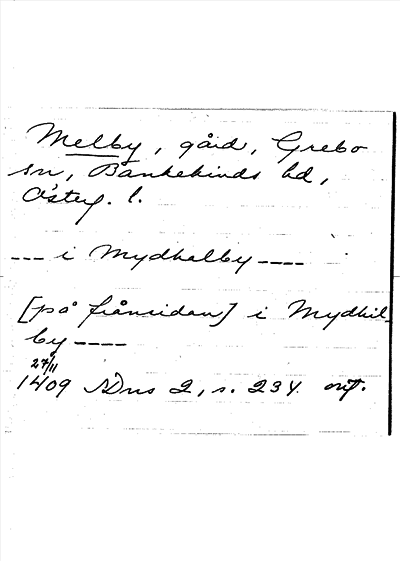 Melby, gård, Grebo
sn, Bankekinds hd,
Österg. l.
--- i Mydhalby ----
[på frånsidan] i Mydhil-
by ----
27/11
1409 SDns 2, s. 234. or.